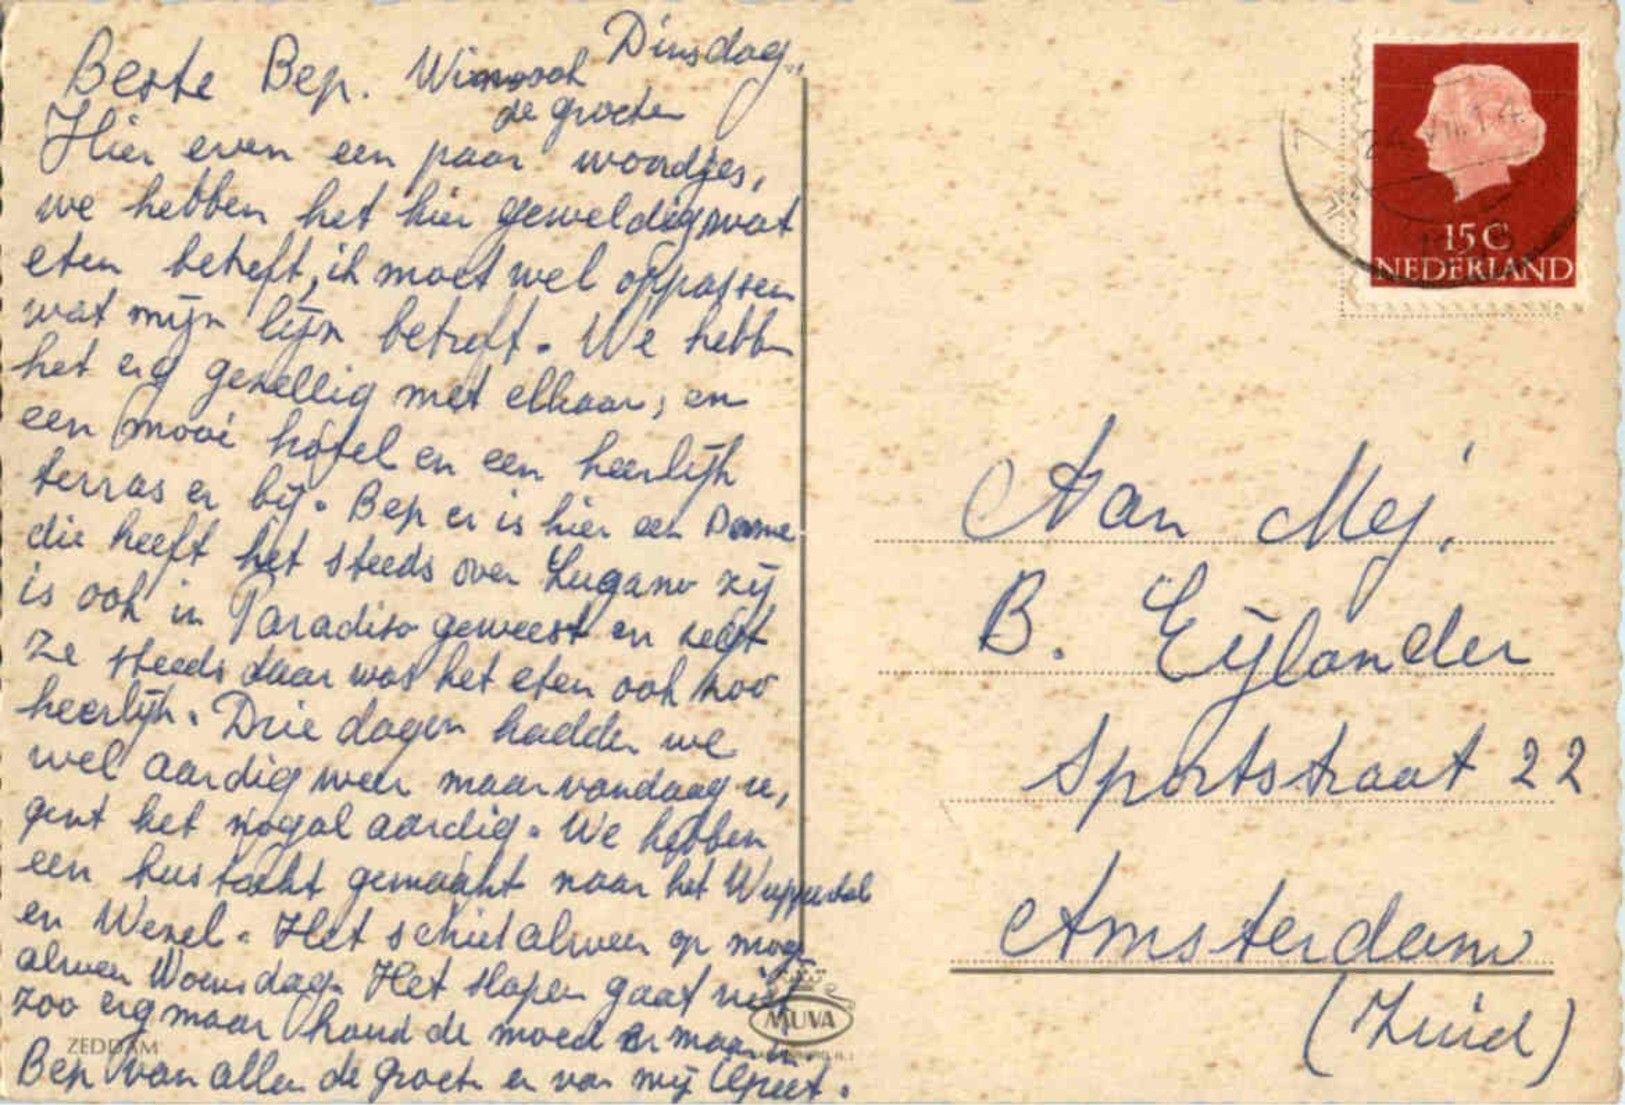 Dinsdag.
Beste Bep. Wim ook
de groeten
Hier even een paar woordjes,
we hebben het hier geweldig wat
eten betreft, ik moet wel oppassen
wat mijn lijn betreft. We hebben
het erg gezellig met elkaar, en
een mooi hotel en een heerlijk
terras er bij. Bep er is hier een Dame
die heeft het steeds over Lugano zij
is ook in Paradiso geweest en zegt
ze steeds daar was het eten ook zoo
heerlijk. Drie dagen hadden we
wel aardig weer maar vandaag re,
gent het nogal aardig. We hebben
een bustocht gemaakt naar het Wuppertal
en Wezel. Het schiet alweer op
alweer Woensdag. Het slapen gaat niet
zoo erg maar houd de moed er maar in
Bep van allen de groeten en van mij
ZEDDAM
MUVA
15 C
NEDERLAND
Aan Mej.
B. Eijlander
Sportstraat 22
Amsterdam
(Zuid)